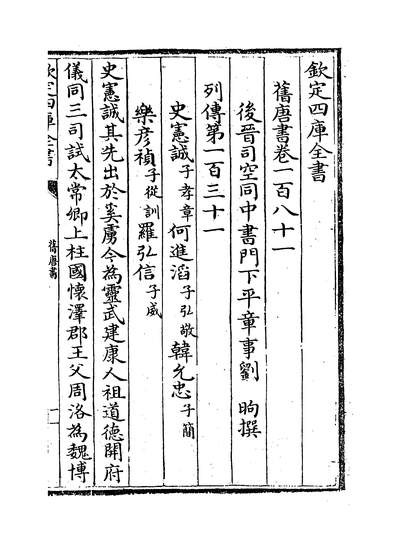 欽定四庫全書
舊唐書卷一百八十一
後晉司空同中書門下平章事劉 昫撰
列傳第一百三十一
史憲誠子孝章 何進滔子弘敬 韓允忠子簡
樂彦禎子從訓 羅弘信子威
史憲誠其先出於奚虜今為靈武建康人祖道德開府
儀同三司試太常卿上柱國懷澤郡王父周洛為魏博
欽定四庫全書
舊唐書
一